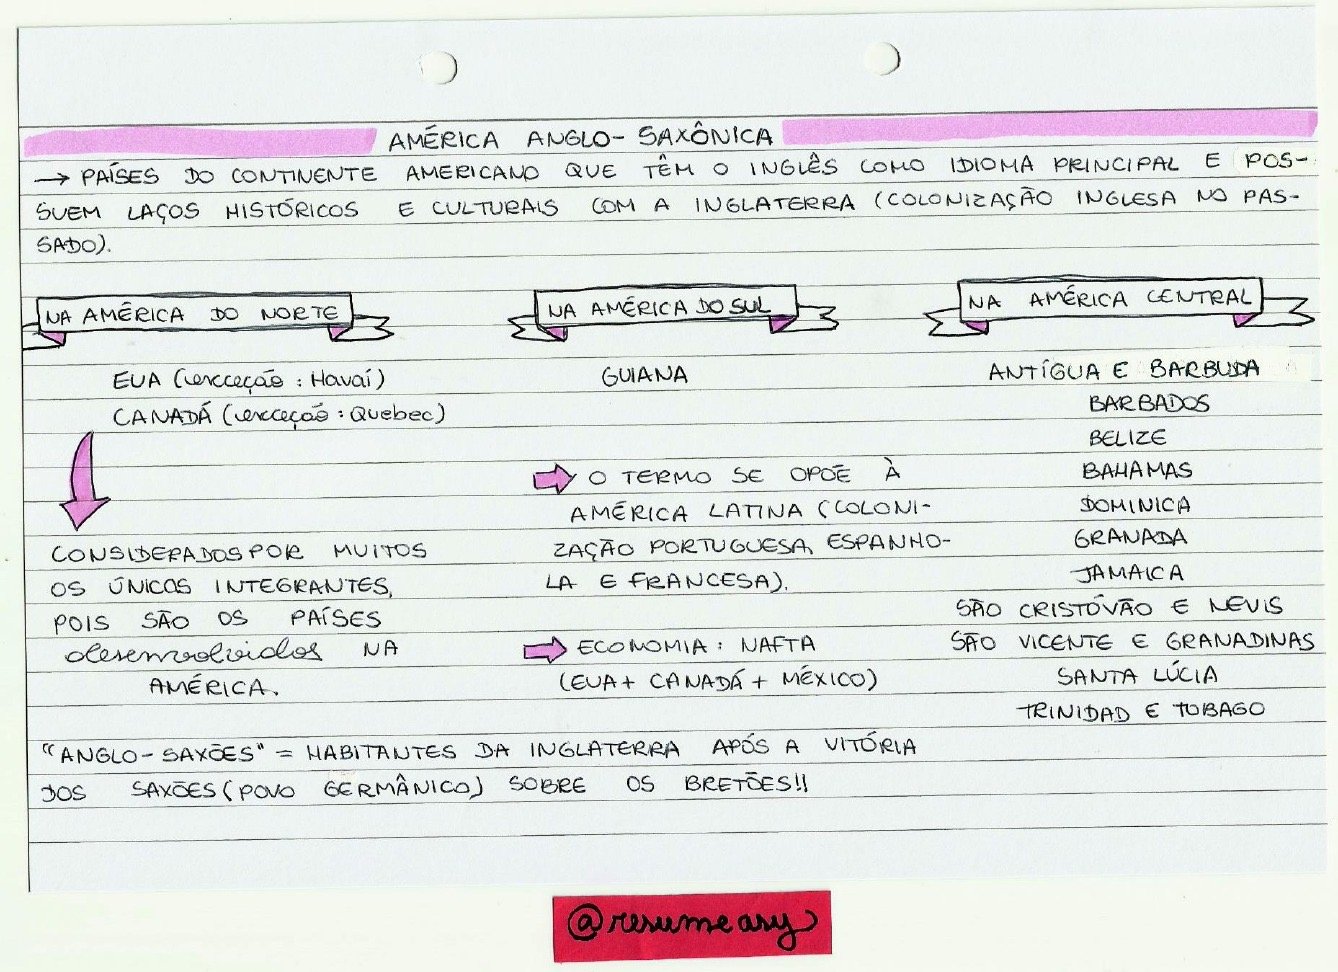 AMÉRICA ANGLO-SAXÔNICA
→ PAÍSES DO CONTINENTE AMERICANO QUE TÊM O INGLÊS COMO IDIOMA PRINCIPAL E POS-
SUEM LAÇOS HISTÓRICOS E CULTURAIS COM A INGLATERRA (COLONIZAÇÃO INGLESA NO PAS-
SADO).
NA AMÉRICA DO NORTE
EUA (exceção: Havaí)
CANADÁ (exceção: Quebec)
CONSIDERADOS POR MUITOS
OS ÚNICOS INTEGRANTES,
POIS SÃO OS PAÍSES
desenvolvidos NA
AMÉRICA.
NA AMÉRICA DO SUL
GUIANA
O TERMO SE OPÕE À
AMÉRICA LATINA (COLONI-
ZAÇÃO PORTUGUESA, ESPANHO-
LA E FRANCESA).
ECONOMIA: NAFTA
(EUA + CANADÁ + MÉXICO)
NA AMÉRICA CENTRAL
ANTÍGUA E BARBUDA
BARBADOS
BELIZE
BAHAMAS
DOMINICA
GRANADA
JAMAICA
SÃO CRISTÓVÃO E NEVIS
SÃO VICENTE E GRANADINAS
SANTA LÚCIA
TRINIDAD E TOBAGO
"ANGLO-SAXÕES" = HABITANTES DA INGLATERRA APÓS A VITÓRIA
DOS SAXÕES (POVO GERMÂNICO) SOBRE OS BRETÕES!!
@resumeasy